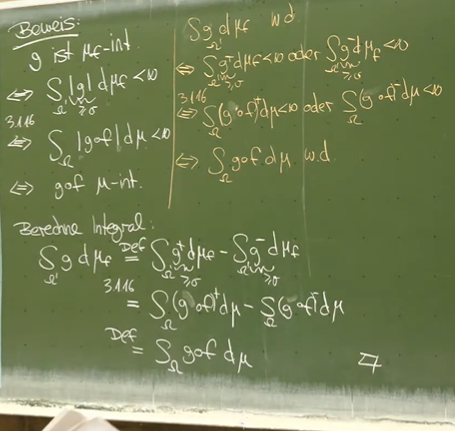 Beweis:
g ist μ_f-int.
⇔ ∫_Ω' |g| dμ_f < ∞
≥0
3.1.16
⇔ ∫_Ω |g∘f| dμ < ∞
⇔ g∘f μ-int.
∫_Ω' g dμ_f w.d.
⇔ ∫_Ω' g⁺ dμ_f < ∞ oder ∫_Ω' g⁻ dμ_f < ∞
≥0 ≥0
3.1.16
⇔ ∫_Ω (g∘f)⁺ dμ < ∞ oder ∫_Ω (g∘f)⁻ dμ < ∞
⇔ ∫_Ω g∘f dμ w.d.
Berechne Integral:
∫_Ω' g dμ_f Def = ∫_Ω' g⁺ dμ_f − ∫_Ω' g⁻ dμ_f
≥0 ≥0
3.1.16 = ∫_Ω (g∘f)⁺ dμ − ∫_Ω (g∘f)⁻ dμ
Def = ∫_Ω g∘f dμ □